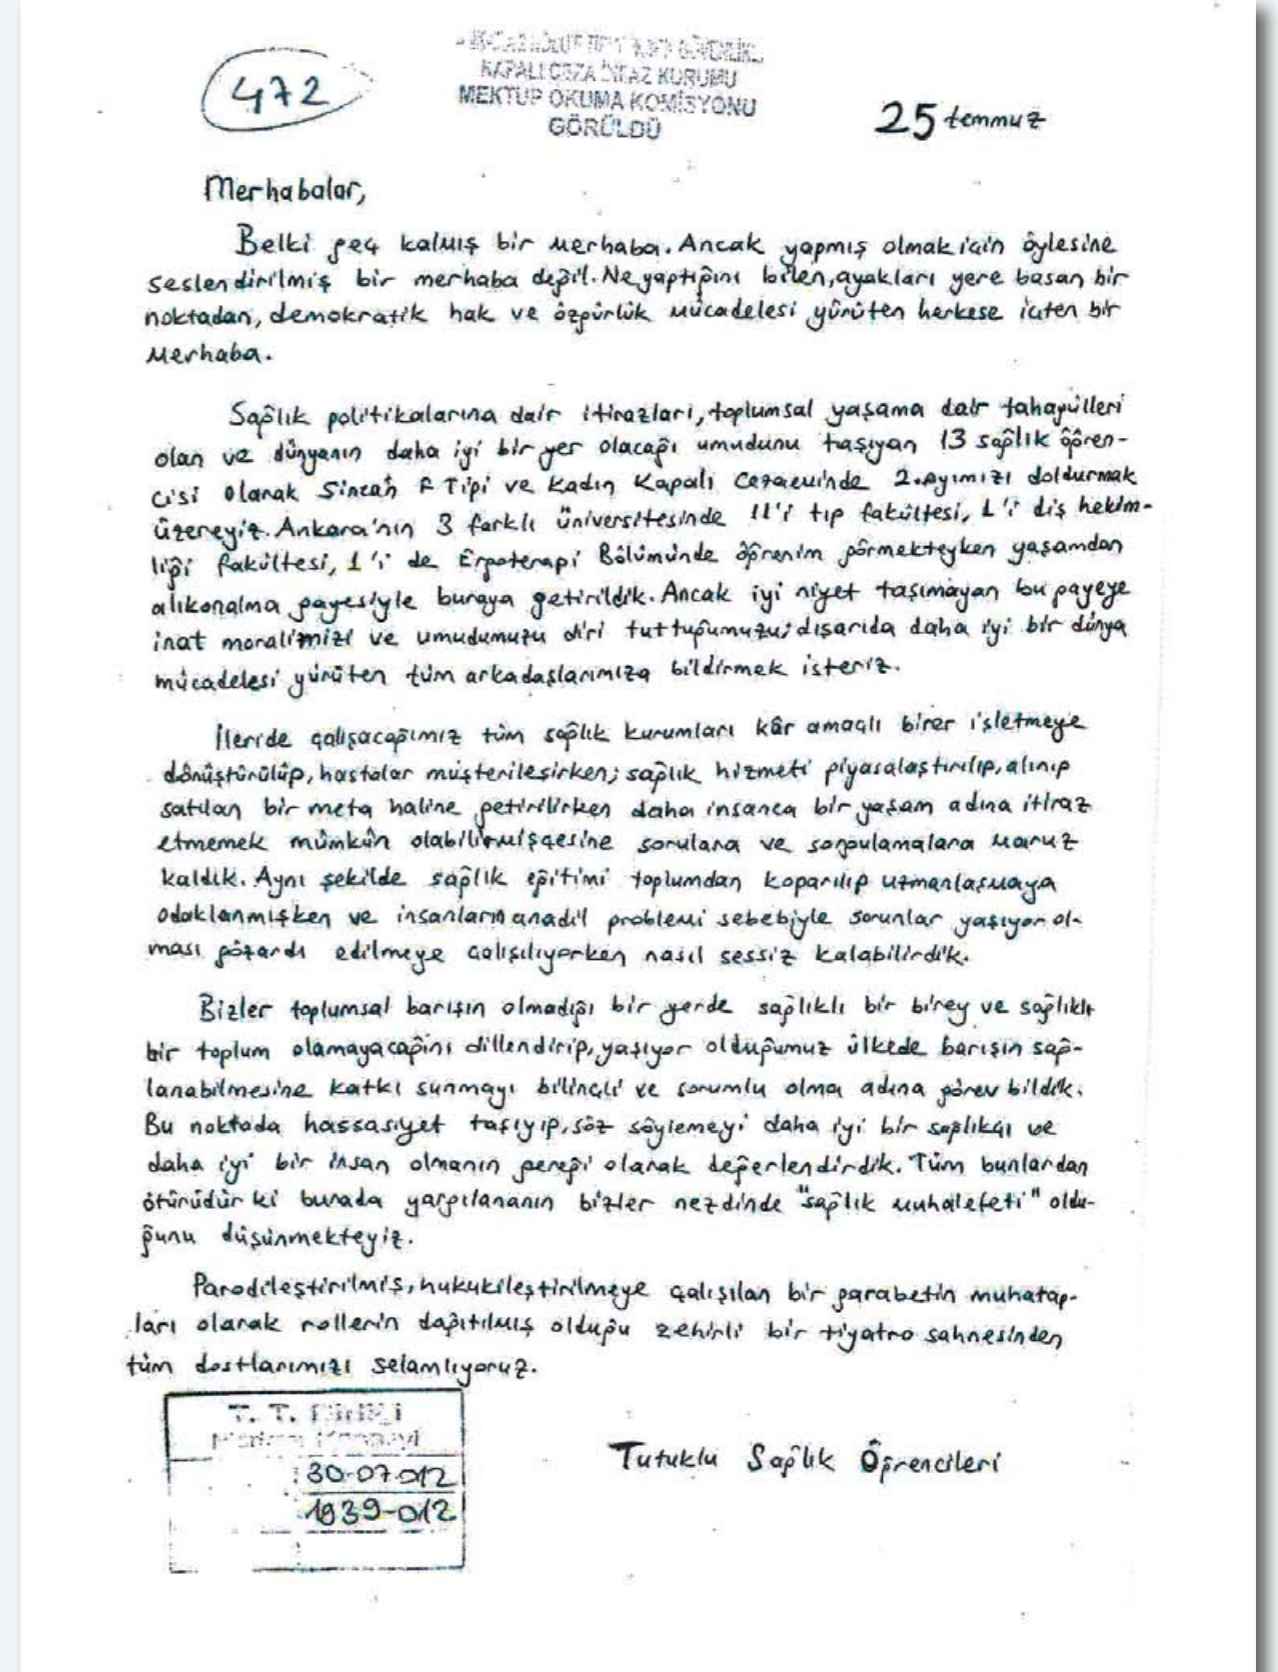 472
KAPALI CEZA İNFAZ KURUMU
MEKTUP OKUMA KOMİSYONU
GÖRÜLDÜ
25 temmuz
Merhabalar,
Belki geç kalmış bir merhaba. Ancak yapmış olmak için öylesine
seslendirilmiş bir merhaba değil. Ne yaptığını bilen, ayakları yere basan bir
noktadan, demokratik hak ve özgürlük mücadelesi yürüten herkese içten bir
merhaba.
Sağlık politikalarına dair itirazları, toplumsal yaşama dair tahayülleri
olan ve dünyanın daha iyi bir yer olacağı umudunu taşıyan 13 sağlık öğren-
cisi olarak Sincan F Tipi ve Kadın Kapalı Cezaevinde 2. ayımızı doldurmak
üzereyiz. Ankara'nın 3 farklı üniversitesinde 11'i tıp fakültesi, 1'i diş hekim-
liği fakültesi, 1'i de Ergoterapi Bölümünde öğrenim görmekteyken yaşamdan
alıkonalma payesiyle buraya getirildik. Ancak iyi niyet taşımayan bu payeye
inat moralimizi ve umudumuzu diri tuttuğumuzu; dışarıda daha iyi bir dünya
mücadelesi yürüten tüm arkadaşlarımıza bildirmek isteriz.
İleride çalışacağımız tüm sağlık kurumları kâr amaçlı birer işletmeye
dönüştürülüp, hastalar müşterileşirken; sağlık hizmeti piyasalaştırılıp, alınıp
satılan bir meta haline getirilirken daha insanca bir yaşam adına itiraz
etmemek mümkün olabilirmişçesine sorulara ve sorgulamalara maruz
kaldık. Aynı şekilde sağlık eğitimi toplumdan koparılıp uzmanlaşmaya
odaklanmışken ve insanların anadil problemi sebebiyle sorunlar yaşıyor ol-
ması gözardı edilmeye çalışılıyorken nasıl sessiz kalabilirdik.
Bizler toplumsal barışın olmadığı bir yerde sağlıklı bir birey ve sağlıklı
bir toplum olamayacağını dillendirip, yaşıyor olduğumuz ülkede barışın sağ-
lanabilmesine katkı sunmayı bilinçli ve sorumlu olma adına görev bildik.
Bu noktada hassasiyet taşıyıp, söz söylemeyi daha iyi bir sağlıkçı ve
daha iyi bir insan olmanın gereği olarak değerlendirdik. Tüm bunlardan
ötürüdür ki burada yargılananın bizler nezdinde "sağlık muhalefeti" oldu-
ğunu düşünmekteyiz.
Parodileştirilmiş, hukukileştirilmeye çalışılan bir garabetin muhatap-
ları olarak rollerin dağıtılmış olduğu zehirli bir tiyatro sahnesinden
tüm dostlarımızı selamlıyoruz.
T. T. 
30-07-012
1939-012
Tutuklu Sağlık Öğrencileri